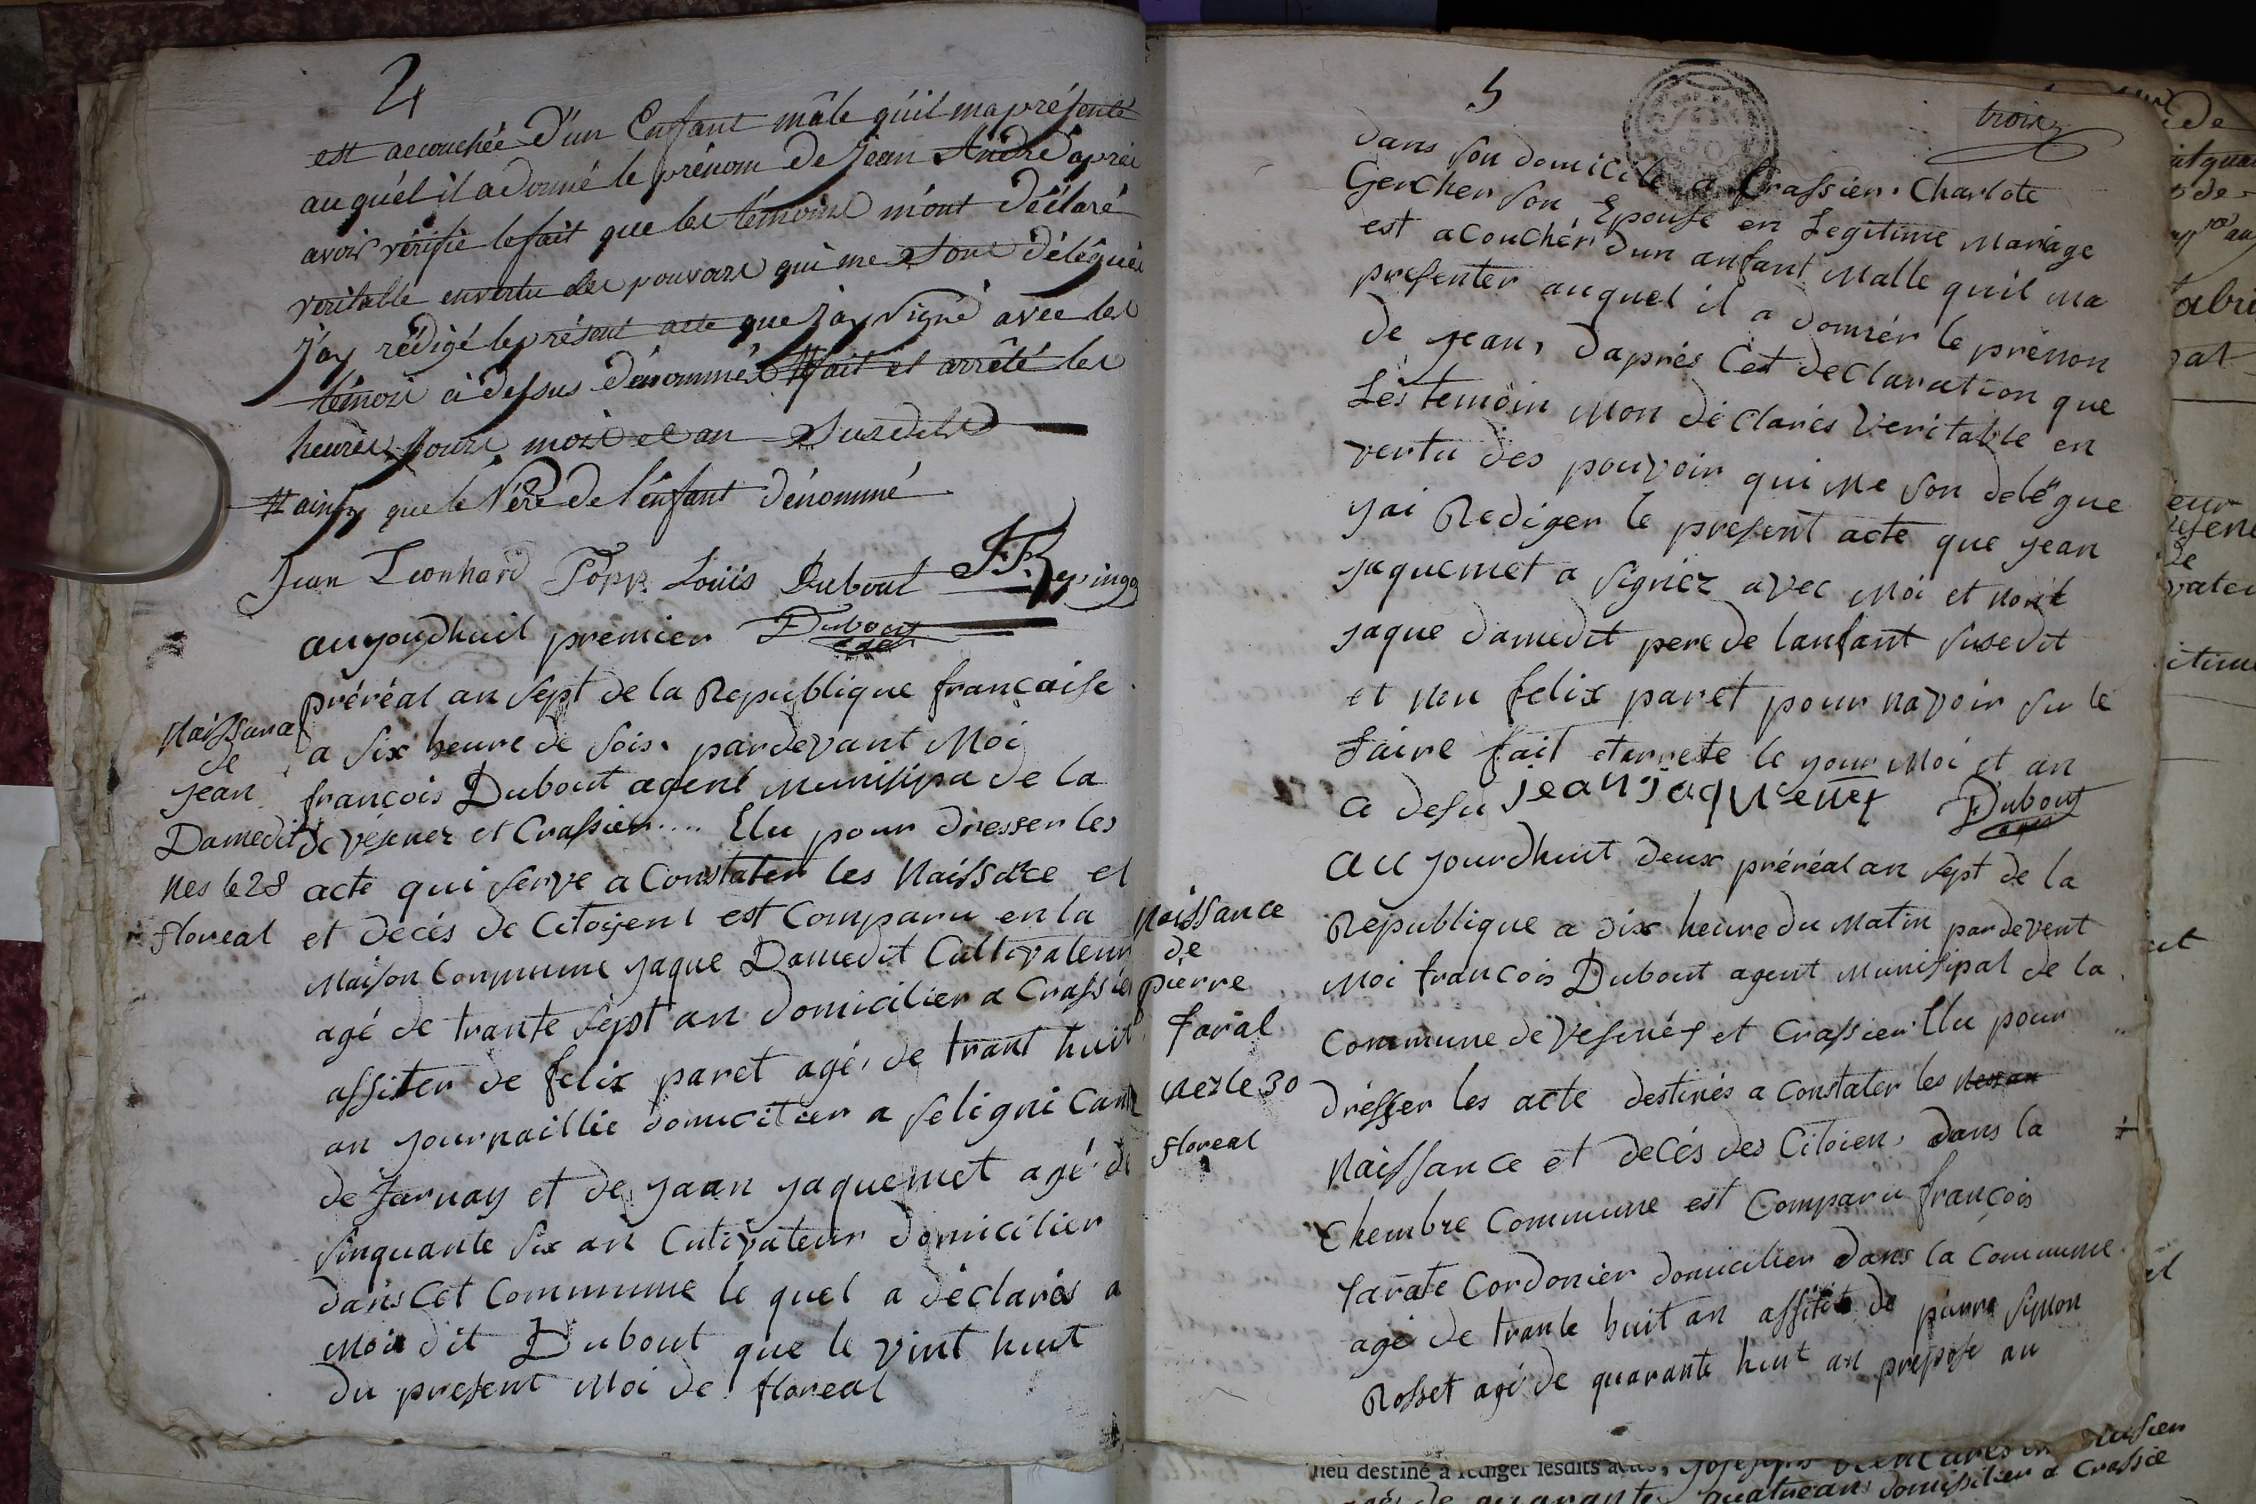 4
est accouchée d'un Enfant mâle qu'il ma présenté
au quel il a donné le prénom de Jean André après
avoir vérifié le fait que les témoins m'ont déclaré
veritable en vertu des pouvoirs qui me sont délégués
j'ay rédigé le présent acte que j'ay signé avec les
témoins à dessus dénommés # fait et arrêté les
heures, jours mois et an Susdits
# ainsy que le Père de l'enfant dénommé
Jean Leonhard Popp Louis Dubout
Dubout
agent
aujourdhuit premier
préréal an sept de la Republique française
a six heure de soir pardevant Moi
françois Dubout agent Munisipa de la
de Vésenez et Crassier.... Elu pour dresser les
acte qui serve a Constater les Naissance et
et decés de Citoyent est Comparu en la
Maison Commune jaque Damedit Cultivateur
agé de trante sept an domicilier a Crassier
assiter de felix paret agé de trant huit
an journaillie domicilier a seligni Canto
de Jarnay et de jaan jaquemet agé de
sinquante six an Cutivateur domicilier
dans Cet Commune le quel a déclarés a
Moi dit Dubout que le vint huit
du present Moi de floreal
Naissance
de
jean
Damedit
Nes le 28
floreal
5
troix
dans son domicile a Crassier Charlote
Gercher son Epouse en Legitime Mariage
est acouchér dun anfant Malle quil ma
presenter auquel il a donnér le prénon
de jean, d'aprés Cet declaration que
Les temoin Mon déclarés Veritable en
vertu des pouvoir qui Me son delégue
jai Rediger le present acte que jean
jaquemet a signez avec Moi et Non
jaque damedit pere de lanfant susedit
et Non felix paret pour navoir su le
faire fait et arrete le jour Moi et an
a desu jean jaquemet Dubout
agent
Au jourdhuit deux préréal an sept de la
République a dix heure du Matin pardevent
Moi francois Dubout agent Munisipal de la
Commune de Vesenés et Crassier Elu pour
drésser les acte destinés a Constater les
Naissance et decés des Citoien, dans la
Chembre Commune est Comparu françois
farate Cordonier domicilier dans la Commune
agé de trante huit an assiter de pierre simon
Rosset agé de quarante huit an prepose au
Naissance
de
pierre
faral
Nez le 30
floreal
lieu destiné à rédiger lesdits actes,
agé de quarante quatre an domissilier a Crassie